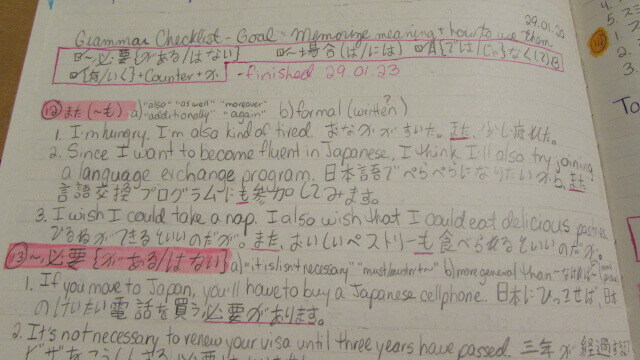 29.01.20
Grammar Checklist - Goal = Memorize meaning + how to use them
~必要{がある/はない} ~場合(ば/には) A{では/じゃ}なくてB
+Counter+か -finished 29.01.23
⑫また(~も) a) "also" "as well" "moreover" "additionally" "again" b) formal (written?)
1. I'm hungry. I'm also kind of tired. おなかがすいた。また、少し疲れた。
2. Since I want to become fluent in Japanese, I think I'll also try joining
a language exchange program. 日本語でぺらぺらになりたいから、また
言語交換プログラムにも参加してみます。
3. I wish I could take a nap. I also wish that I could eat delicious pastries.
ひるねができるといいのだが。また、おいしいペストリーも食べられるといいのだが。
⑬~必要{がある/はない} a) "it is/isn't necessary" b) more general than
1. If you move to Japan, you'll have to buy a Japanese cellphone. 日本にひっこせば、日本
のけいたい電話を買う必要があります。
2. It's not necessary to renew your visa until three years have passed. 三年が経過
To